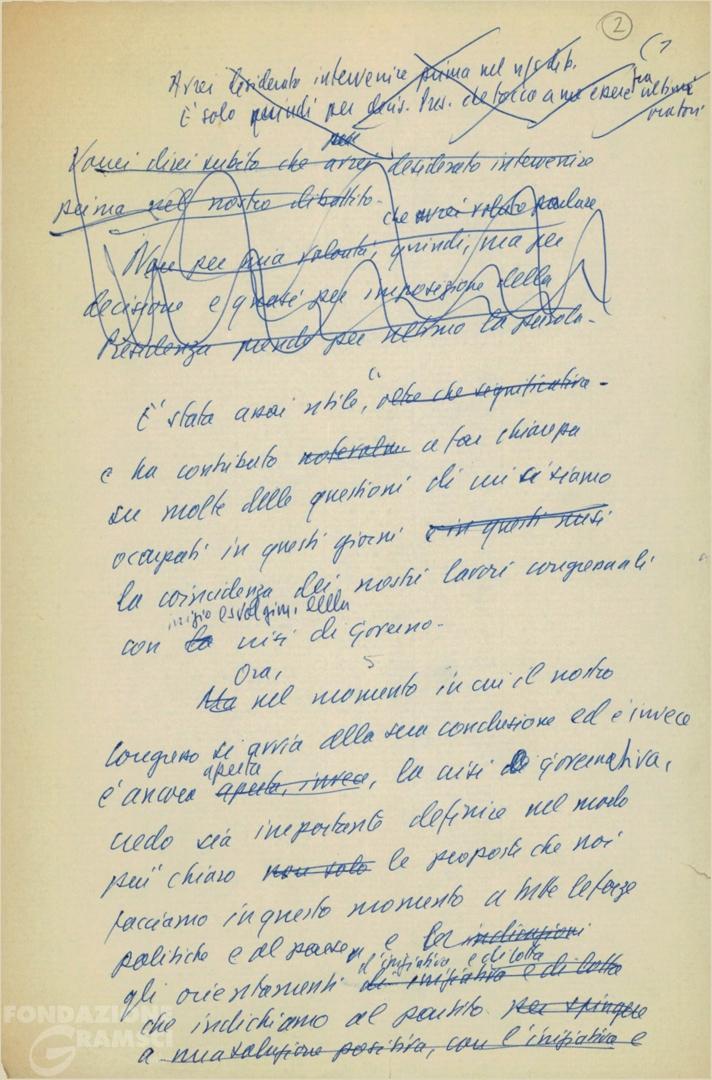 2
(1
Avrei desiderato intervenire prima nel ns/ dib.
È solo quindi per decis. Pres. che tocca a me essere tra ultimi
oratori
Vorrei dire subito che avrei desiderato intervenire
prima nel nostro dibattito.
che avrei voluto parlare
Non per mia volontà, quindi, ma per
decisione e quasi per imposizione della
Presidenza prendo per ultimo la parola.
È stata assai utile, oltre che significativa
e ha contribuito a far chiarezza
su molte delle questioni di cui ci siamo
occupati in questi giorni e in questi mesi
la coincidenza dei nostri lavori congressuali
inizio e svolgim. della
con la crisi di governo.
Ora, 5
Ma nel momento in cui il nostro
congresso si avvia alla sua conclusione ed è invece
aperta
è ancora aperta, invece, la crisi di governativa,
credo sia importante definire nel modo
più chiaro non solo le proposte che noi
facciamo in questo momento a tutte le forze
politiche e al paese, e le indicazioni
d'iniziativa e di lotta
gli orientamenti di iniziativa e di lotta
che indichiamo al partito per spingere
a una soluzione positiva, con l'iniziativa e
FONDAZIONE
GRAMSCI